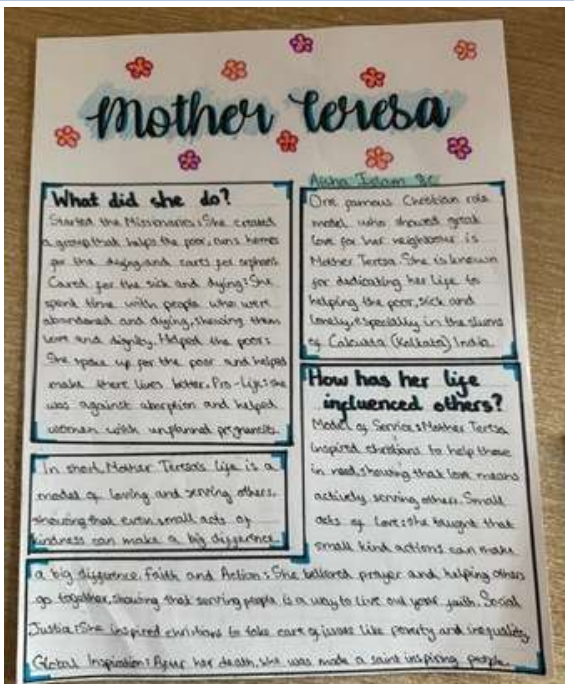 Mother Teresa
Aisha Islam 8c
What did she do?
Started the Missionaries: She created
a group that helps the poor, runs homes
for the dying and cares for orphans
Cared for the sick and dying: She
spent time with people who were
abandoned and dying, showing them
love and dignity. Helped the poor:
She spoke up for the poor and helped
make there lives better. Pro-Life: she
was against abortion and helped
women with unplanned pregnancies.
In short, Mother Teresa's life is a
model of loving and serving others,
showing that even small acts of
kindness can make a big difference.
One famous Christian role
model who showed great
love for her neighbour is
Mother Teresa. She is known
for dedicating her life to
helping the poor, sick and
lonely, especially in the slums
of Calcutta (Kolkata) India.
How has her life
influenced others?
Model of Service: Mother Teresa
inspired christians to help those
in need, showing that love means
actively serving others. Small
acts of Love: she taught that
small kind actions can make
a big difference. Faith and Action: She believed prayer and helping others
go together, showing that serving people is a way to live out your faith. Social
Justice: She inspired christians to take care of issues like poverty and inequality
Global Inspiration: After her death, she was made a saint inspiring people.